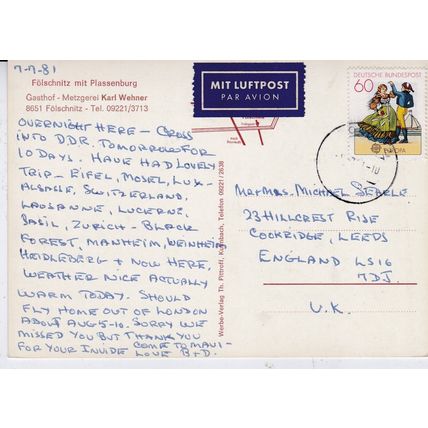 7-7-81
Fölschnitz mit Plassenburg
Gasthof - Metzgerei Karl Wehner
8651 Fölschnitz - Tel. 09221/3713
OVERNIGHT HERE - CROSS
INTO DDR. TOMORROW FOR
10 DAYS. HAVE HAD LOVELY
TRIP - EIFEL, MOSEL, LUX-
ALSACE, SWITZERLAND,
LAUSANNE, LUCERNE,
BASIL, ZURICH - BLACK
FOREST, MANHEIM, WEINHEIM
HEIDLEBERG + NOW HERE,
WEATHER NICE ACTUALLY
WARM TODAY. SHOULD
FLY HOME OUT OF LONDON
ABOUT AUG 5-10. SORRY WE
MISSED YOU BUT THANK YOU
FOR YOUR INVIDE COME TO MAUI -
LOVE B+D.
Werbe-Verlag Th. Pittroff, Kulmbach, Telefon 09221/2638
MIT LUFTPOST
PAR AVION
DEUTSCHE BUNDESPOST
60
EUROPA
MR + MRS. MICHAEL SEARLE
23 HILLCREST RISE
COOKRIDGE, LEEDS
ENGLAND LS16
7DJ.
U.K.